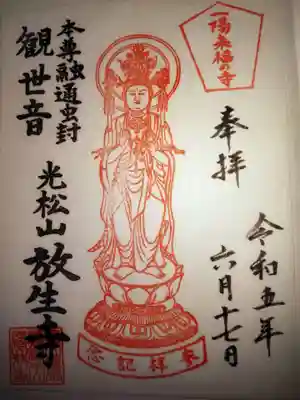 一陽来福の寺
奉拝
令和五年
六月十七日
本尊融通虫封
観世音
光松山
放生寺
念記拝奉